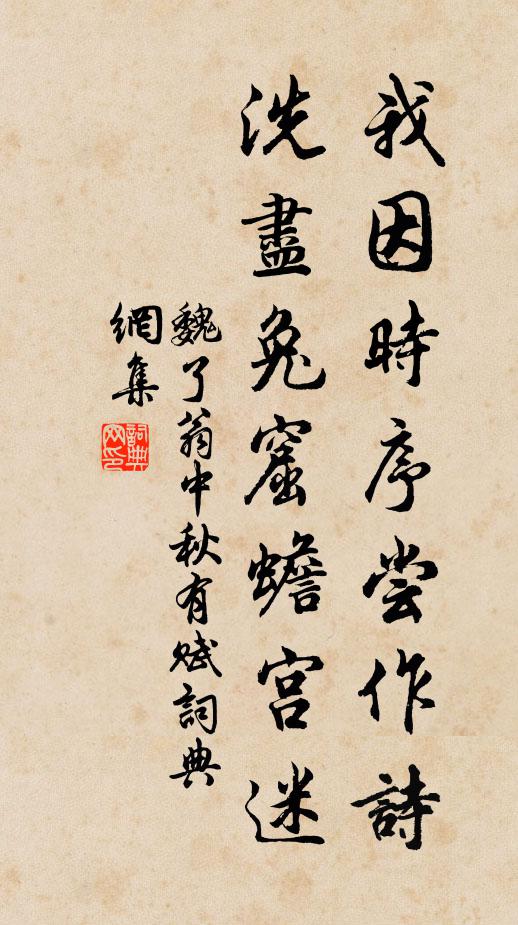 我因時序尝作詩
洗盡兔窟蟾宫迷
魏了翁中秋有赋詞典
網集
詞典
网印